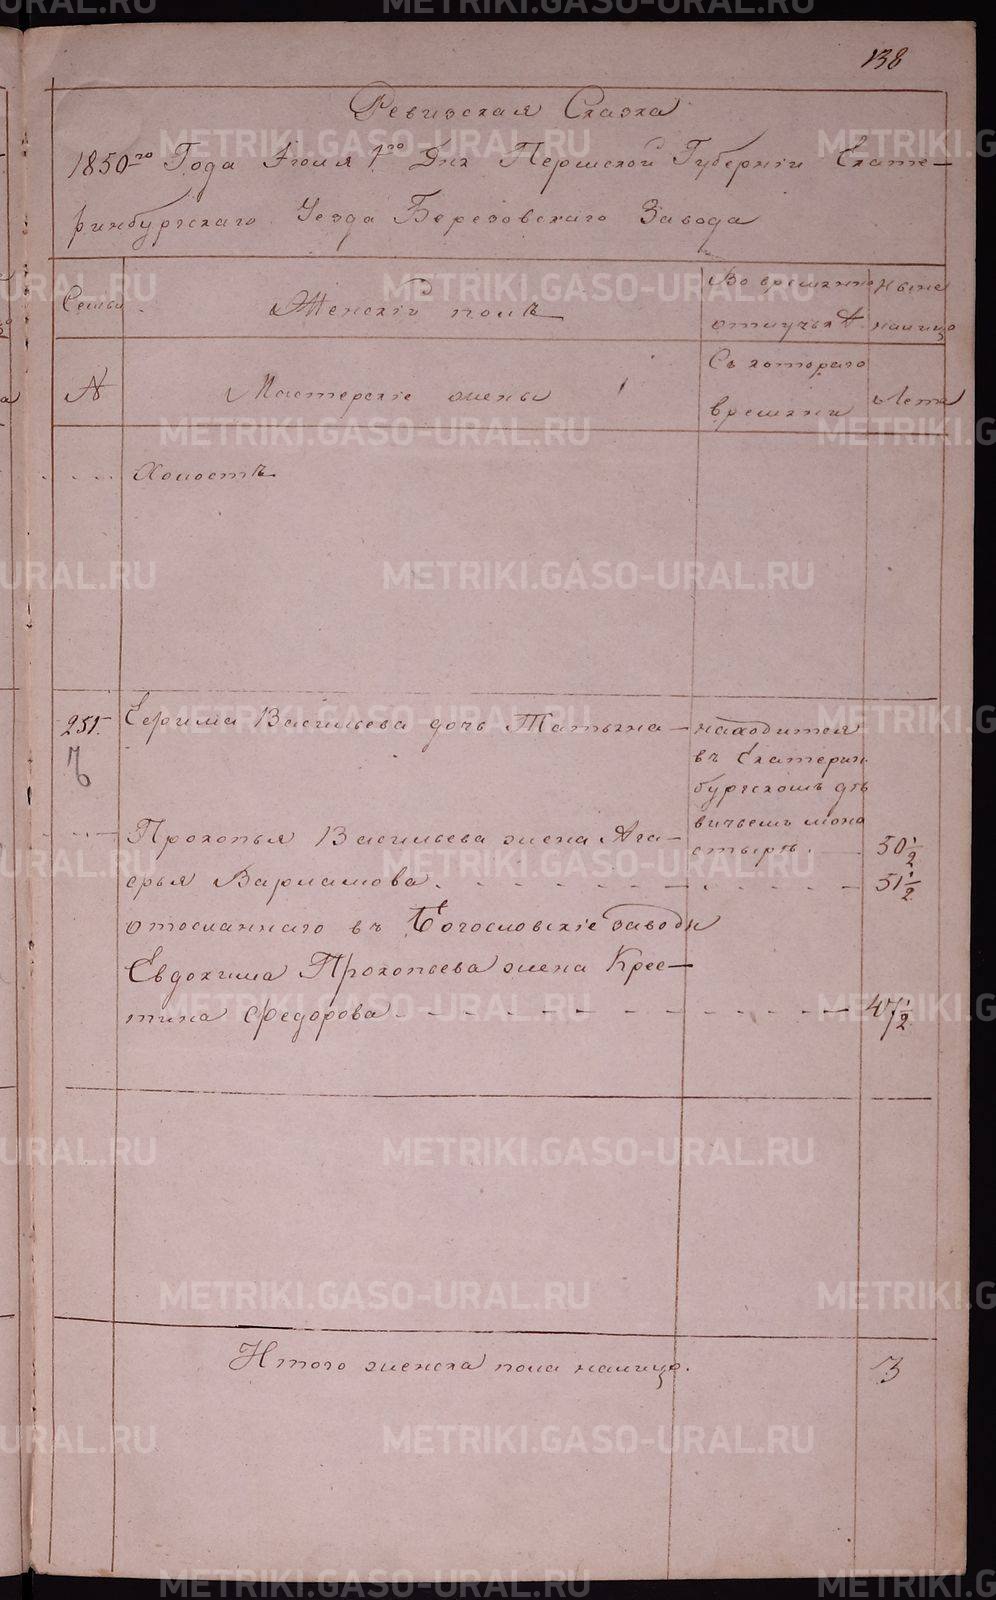 138
Ревизская Сказка
1850го Года Июля 1го Дня Пермской Губерніи Екате–
ринбургскаго Уезда Березовскаго Завода
Семьи
Женскій полъ
Во временно
отлучкѣ
Ныне
налицо
№
Мастерскіе жены
Съ котораго
времяни
Лета
Холостъ
251.
Ефрима Васильева дочь Татьяна –
находится
въ Екатерин
бургскомъ дѣ
вичьемъ мона
стырѣ. 50 1/2
Прокопья Васильева жена Ага–
фья Варламова 51 1/2
отосланнаго въ Богословскіе заводы
Евдокима Прокопьева жена Крес–
тина Федорова 47 1/2
Итого женска пола налицо. 3
METRIKI.GASO-URAL.RU